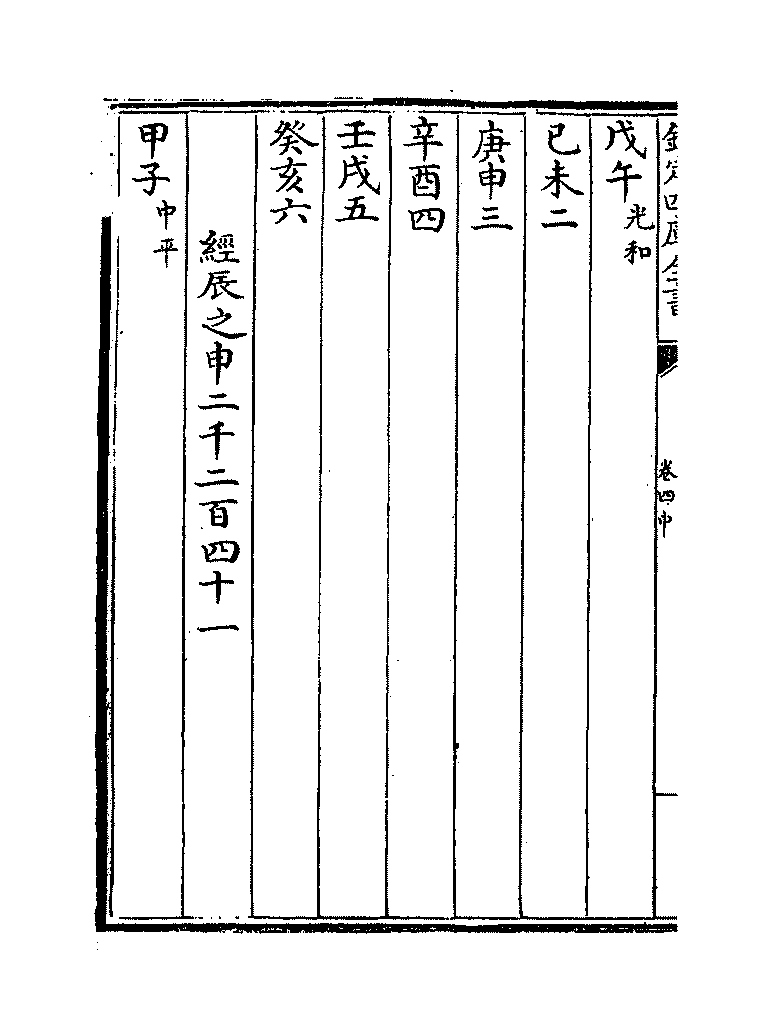 欽定四庫全書
卷四中
戊午光和
已未二
庚申三
辛酉四
壬戌五
癸亥六
經辰之申二千二百四十一
甲子中平